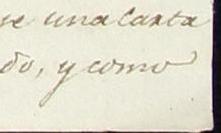 se una Carta
do, y como